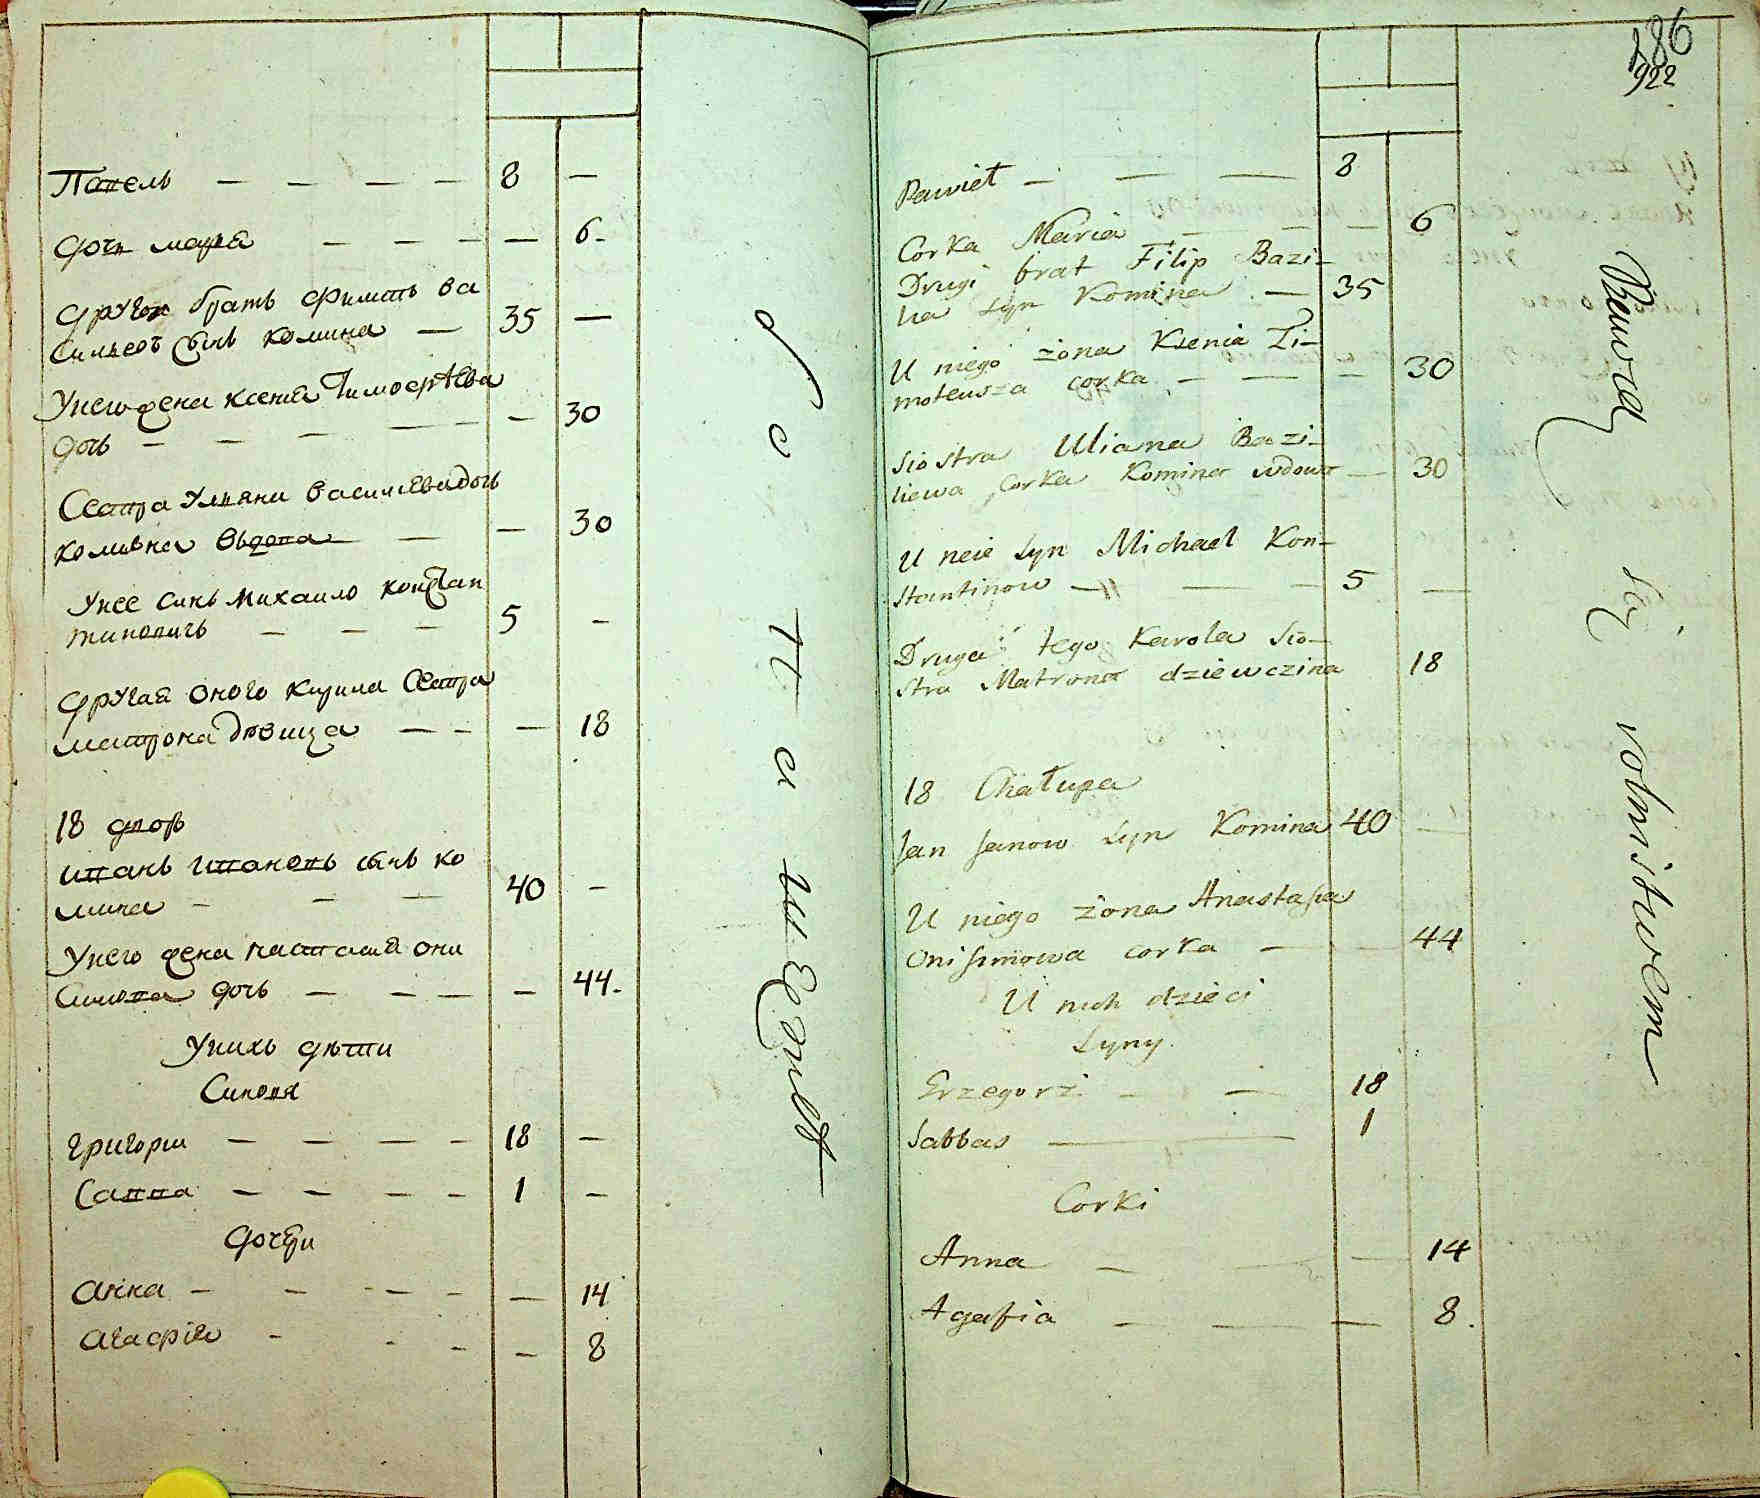 Павель — — — — 8 —
дочь мария — — — — 6.
другои братъ Филипъ Ва
сильевъ сынъ комина — 35 —
У него жена ксения Тимофѣева
дочь — — — — — 30
Сестра Ульяна Василиева дочь
комина вьдова — — 30
У нее синъ михаило констан
тиновичь — — — 5 —
другая оного кирила сестра
матрона дѣвица — — — 18
18 дворъ
иванъ ивановъ сынъ ко
мина — — — 40 —
У него жена настасия они
симова дочь — — — — 44.
У нихъ дѣти
Синовя
григории — — — — 18 —
Савва — — — — 1 —
дочери
анна — — — — — 14
агафия — — — — 8
186
922
Paweł — — — 8
Corka Maria — — — 6
Drugi brat Filip Bazi-
lia Syn Komina — 35
U niego żona Ksenia Ti-
moteusza corka — — — 30
Siostra Uliana Bazi-
liewa Corka Komina wdowa — 30
U neie Syn Michael Kon-
stantinow — — — 5 —
Druga tego Karola Sio-
stra Matrona dziewczina 18
18 Chałupa
Jan Janow Syn Komina 40 —
U niego żona Anastasia
Onisimowa corka — — 44
U nich dzieci
Syny
Grzegorż — — 18
Sabbas — 1
Corki
Anna — — — 14
Agafia — — — 8.
Bawią się rolnistwem